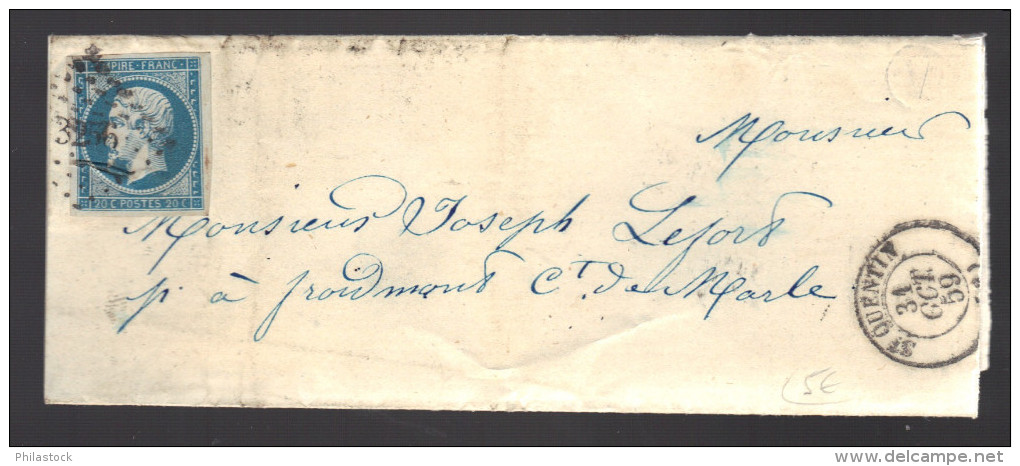 EMPIRE·FRANC·
20 C POSTES 20 C
Monsieur
Monsieur Joseph Lefort
à froidmont Ct. de Marle
ST QUENTIN
31
OCT
59
5€
Philastock
www.delcampe.net